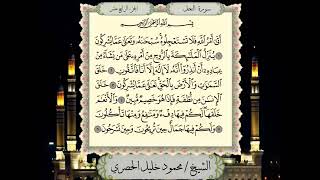 سورة النحل
الجزء الرابع عشر
بِسْمِ اللَّهِ الرَّحْمَٰنِ الرَّحِيمِ
أَتَىٰ أَمْرُ اللَّهِ فَلَا تَسْتَعْجِلُوهُ سُبْحَانَهُ وَتَعَالَىٰ عَمَّا يُشْرِكُونَ ۝١
يُنَزِّلُ الْمَلَائِكَةَ بِالرُّوحِ مِنْ أَمْرِهِ عَلَىٰ مَن يَشَاءُ مِنْ
عِبَادِهِ أَنْ أَنذِرُوا أَنَّهُ لَا إِلَٰهَ إِلَّا أَنَا فَاتَّقُونِ ۝٢ خَلَقَ
السَّمَاوَاتِ وَالْأَرْضَ بِالْحَقِّ تَعَالَىٰ عَمَّا يُشْرِكُونَ ۝٣ خَلَقَ
الْإِنسَانَ مِن نُّطْفَةٍ فَإِذَا هُوَ خَصِيمٌ مُّبِينٌ ۝٤ وَالْأَنْعَامَ
خَلَقَهَا لَكُمْ فِيهَا دِفْءٌ وَمَنَافِعُ وَمِنْهَا تَأْكُلُونَ ۝٥
وَلَكُمْ فِيهَا جَمَالٌ حِينَ تُرِيحُونَ وَحِينَ تَسْرَحُونَ ۝٦
الشيخ / محمود خليل الحصري